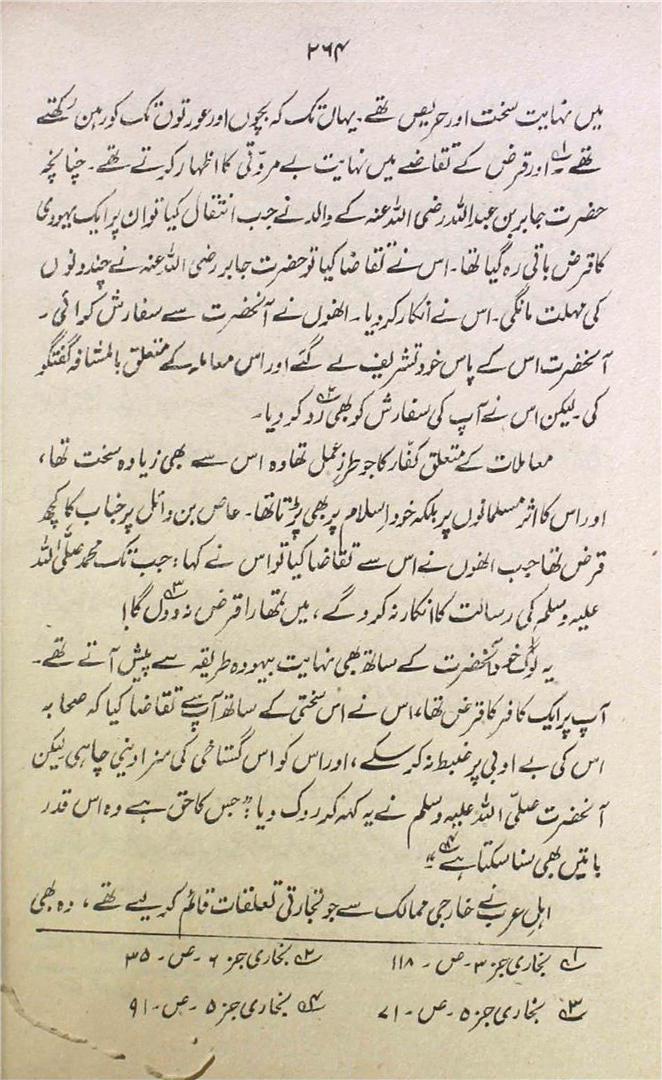 ۲۶۴
میں نہایت سخت اور حریص تھے۔ یہاں تک کہ بچوں اور عورتوں تک کو رہن رکھتے
تھے۔؂۱ اور قرض کے تقاضے میں نہایت بے مروّتی کا اظہار کرتے تھے۔ چنانچہ
حضرت جابر بن عبداللہ رضی اللہ عنہ کے والد نے جب انتقال کیا تو ان پر ایک یہودی
کا قرض باقی رہ گیا تھا۔ اس نے تقاضا کیا تو حضرت جابر رضی اللہ عنہ نے چند دنوں
کی مہلت مانگی۔ اس نے انکار کر دیا۔ انھوں نے آنحضرت سے سفارش کرائی۔
آنحضرت اس کے پاس خود تشریف لے گئے اور اس معاملہ کے متعلق بالمشافہ گفتگو
کی۔ لیکن اس نے آپ کی سفارش کو بھی؂۲ رد کر دیا۔
معاملات کے متعلق کفّار کا جو طرز عمل تھا وہ اس سے بھی زیادہ سخت تھا،
اور اس کا اثر مسلمانوں پر بلکہ خود اسلام پر بھی پڑتا تھا۔ عاص بن وائل پر خباب کا کچھ
قرض تھا جب انھوں نے اس سے تقاضا کیا تو اس نے کہا: جب تک محمد صلّی اللہ
علیہ وسلم کی رسالت کا انکار نہ کرو گے، میں تمھارا قرض نہ دوں؂۳ گا!
یہ لوگ خود آنحضرت کے ساتھ بھی نہایت بیہودہ طریقہ سے پیش آتے تھے۔
آپ پر ایک کافر کا قرض تھا، اس نے اس سختی کے ساتھ آپ سے تقاضا کیا کہ صحابہ
اس کی بے ادبی پر ضبط نہ کر سکے، اور اس کو اس گستاخی کی سزا دینی چاہی لیکن
آنحضرت صلّی اللہ علیہ وسلم نے یہ کہہ کر روک دیا: "جس کا حق ہے وہ اس قدر
باتیں بھی سنا سکتا ہے؂۴"
اہل عرب نے خارجی ممالک سے جو تجارتی تعلقات قائم کر لیے تھے، وہ بھی
؂۱ بخاری جز ۳۔ ص۔ ۱۱۸ ؂۲ بخاری جز ۶۔ ص۔ ۳۵
؂۳ بخاری جز ۵۔ ص۔ ۷۱ ؂۴ بخاری جز ۵۔ ص۔ ۹۱